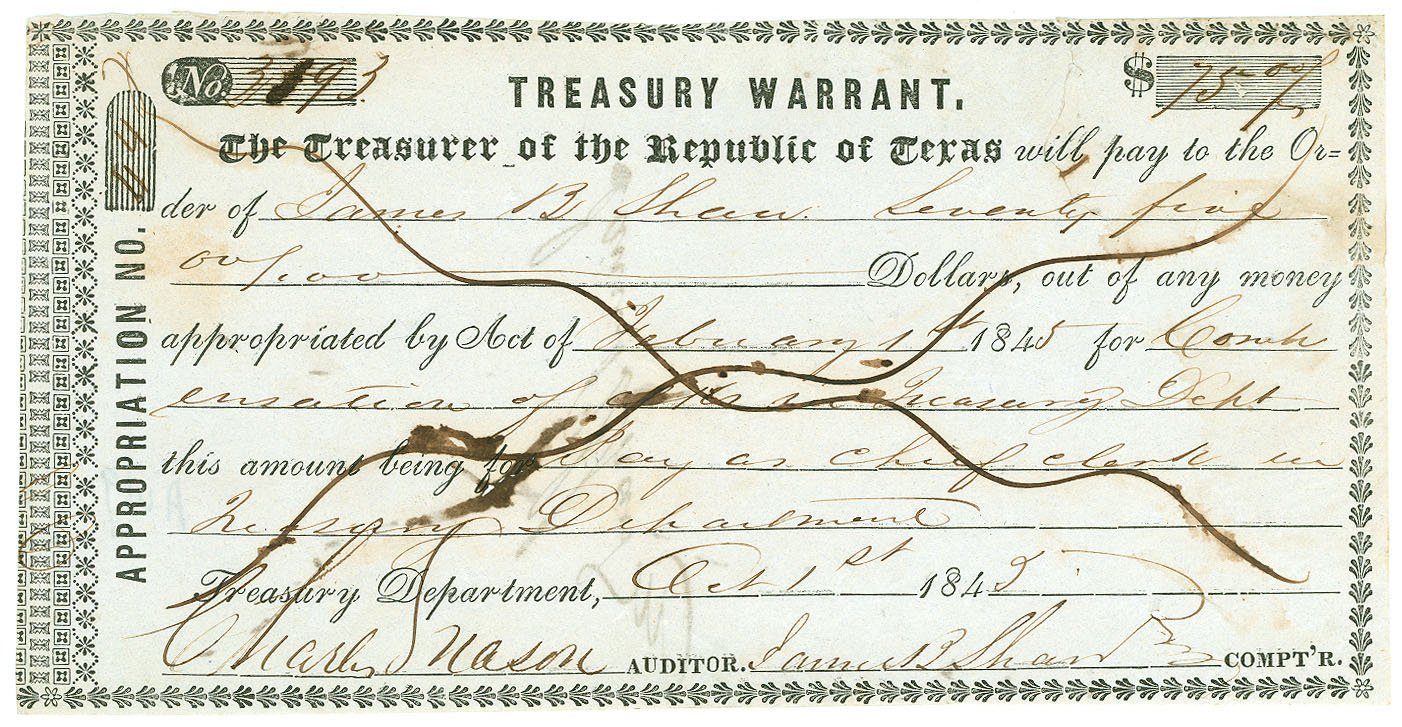 No. 3893
TREASURY WARRANT.
$ 75 00/
APPROPRIATION NO. 44
The Treasurer of the Republic of Texas will pay to the Or=
der of James B Shaw. Seventy five
00/100 Dollars, out of any money
appropriated by Act of February 1st 1845 for Comp
ensation of in Treasury Dept
this amount being for Pay as chief clerk in
Treasury Department
Treasury Department, Oct 1st 1845
Charles Mason AUDITOR. James B Shaw COMPT'R.